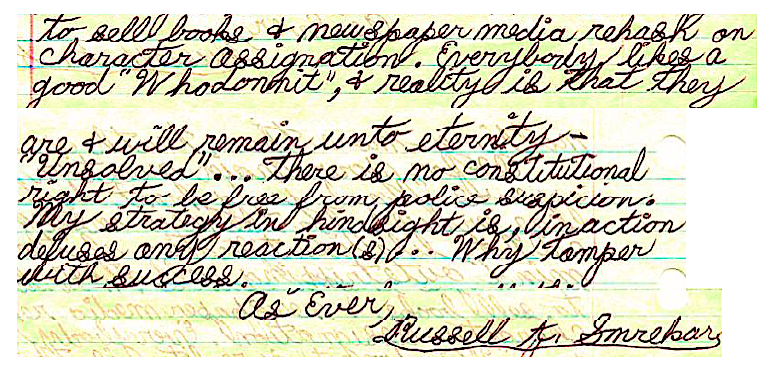 to sell books & newspaper media rehash on
character assignation. Everybody likes a
good "Whodonnit", & reality is that they
are & will remain unto eternity -
"Unsolved"... there is no constitutional
right to be free from police suspicion.
My strategy in hindsight is, inaction
defuses any reaction(s)... Why tamper
with success.
As Ever,
Russell A. Smrekar